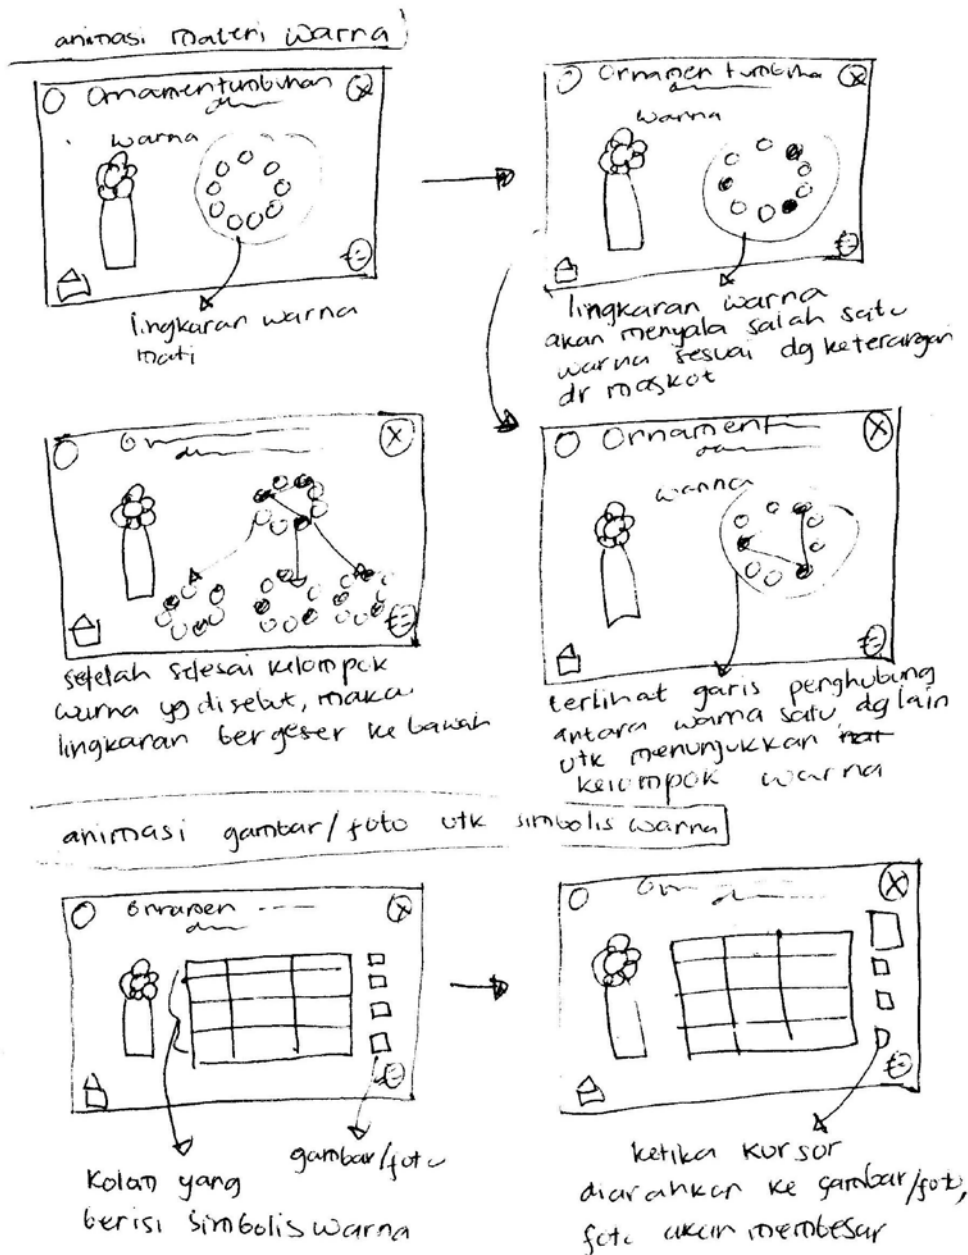 animasi materi warna
Ornamen tumbuhan
warna
lingkaran warna
mati
Ornamen tumbuha
warna
lingkaran warna
akan menyala salah satu
warna sesuai dg keterangan
dr maskot
setelah selesai kelompok
warna yg disebut, maka
lingkaran bergeser ke bawah
Ornament
warna
terlihat garis penghubung
antara warna satu dg lain
utk menunjukkan
kelompok warna
animasi gambar/foto utk simbolis warna
Ornamen
kolom yang
berisi simbolis warna
gambar/foto
ketika kursor
diarahkan ke gambar/foto,
foto akan membesar